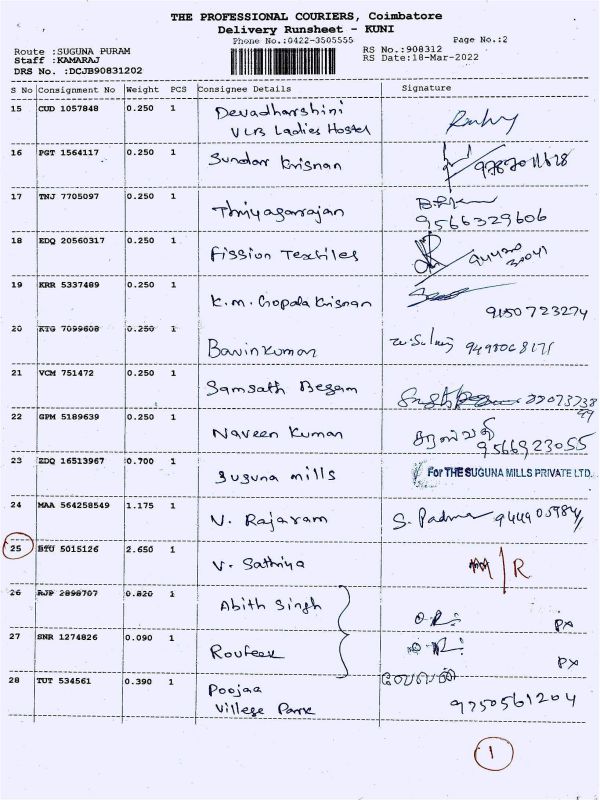 THE PROFESSIONAL COURIERS, Coimbatore
Delivery Runsheet - KUNI
Phone No.:0422-3505555 Page No.:2
Route :SUGUNA PURAM RS No.:908312
Staff :KAMARAJ RS Date:18-Mar-2022
DRS No. :DCJB90831202
S No Consignment No Weight PCS Consignee Details Signature
15 CUD 1057848 0.250 1 Devadharshini
VLB Ladies Hostel
16 PGT 1564117 0.250 1 Sundar Krisnan
17 TNJ 7705097 0.250 1 Thiyagarajan
9566329606
18 EDQ 20560317 0.250 1 Fission Textiles 94420
30041
19 KRR 5337489 0.250 1 K.m. Gopala Krisnan
9150723274
20 KTG 7099608 0.250 1 Bavinkumar
21 VCM 751472 0.250 1 Samsath Begam
22 GPM 5189639 0.250 1 Naveen Kumar
9566923055
23 ZDQ 16513967 0.700 1 Suguna mills For THE SUGUNA MILLS PRIVATE LTD.
24 MAA 564258549 1.175 1 N. Rajaram S. Padma
25 BTU 5015126 2.650 1 V. Sathiya R
26 RJP 2898707 0.820 1 Abith Singh PX
27 SNR 1274826 0.090 1 Roufeek PX
28 TUT 534561 0.390 1 Poojaa
Villege Park 9750561204
1